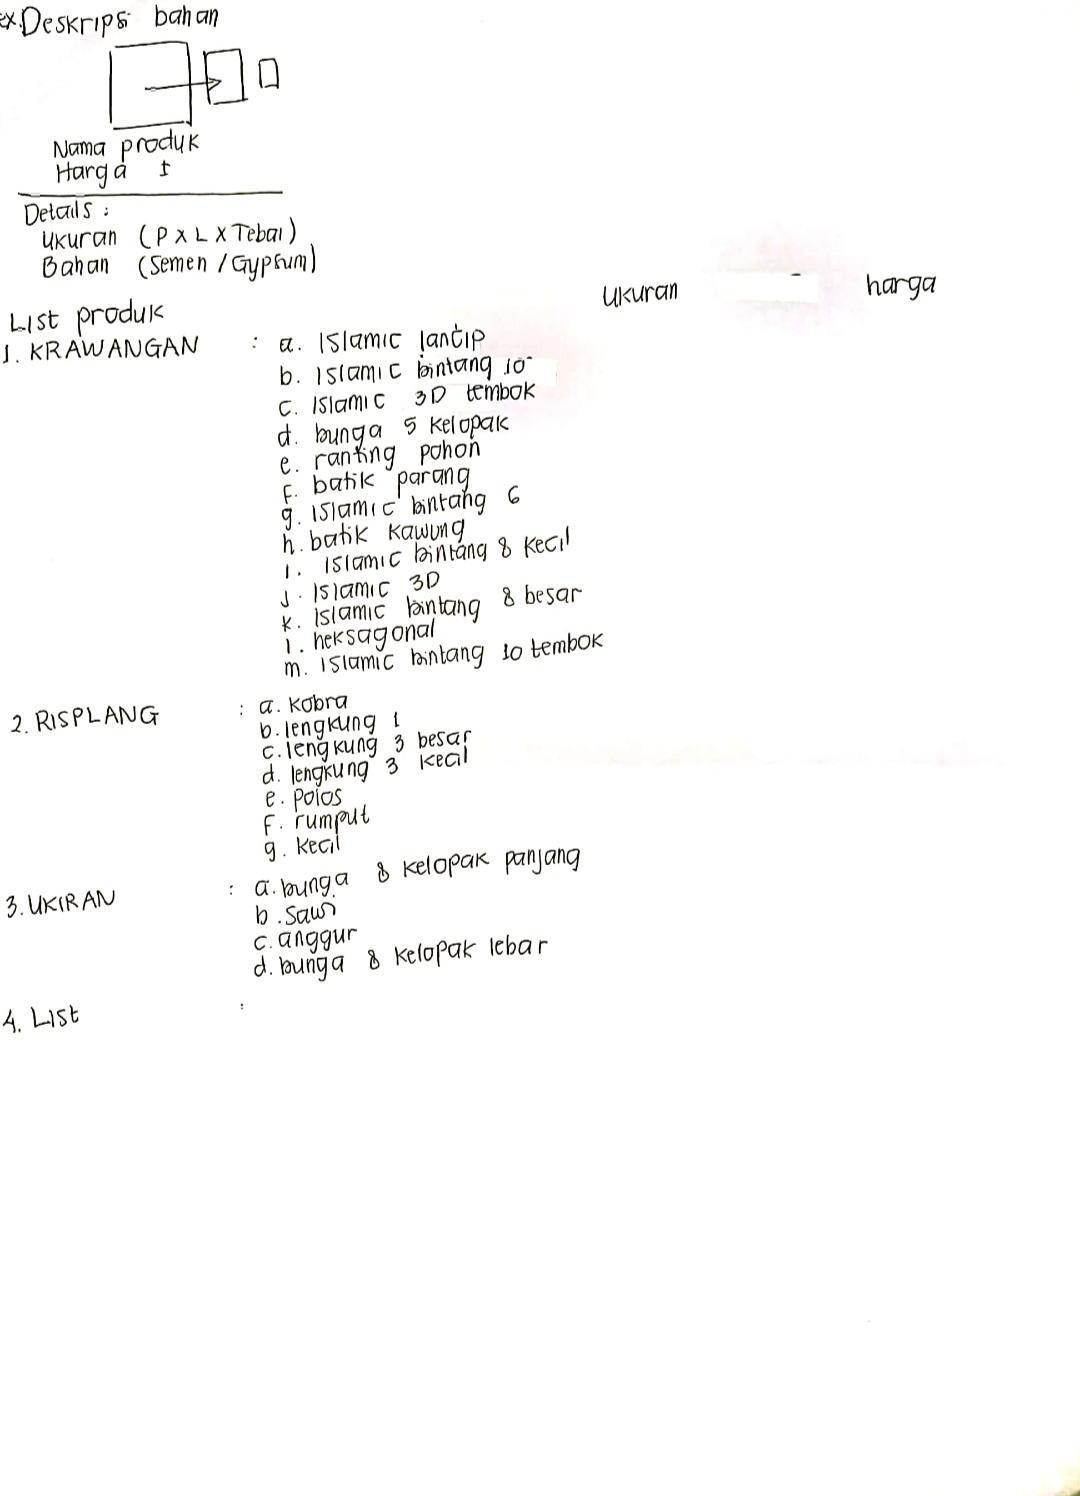 ex. Deskripsi bahan
Nama produk
Harga ±
Details :
Ukuran (P x L x Tebal)
Bahan (Semen / Gypsum)
Ukuran harga
List produk
1. KRAWANGAN : a. Islamic lancip
b. Islamic bintang 10
c. Islamic 3D tembok
d. bunga 5 kelopak
e. ranting pohon
f. batik parang
g. Islamic bintang 6
h. batik kawung
i. Islamic bintang 8 kecil
j. Islamic 3D
k. Islamic bintang 8 besar
l. heksagonal
m. Islamic bintang 10 tembok
2. RISPLANG : a. kobra
b. lengkung 1
c. lengkung 3 besar
d. lengkung 3 kecil
e. polos
f. rumput
g. kecil
3. UKIRAN : a. bunga 8 kelopak panjang
b. sawi
c. anggur
d. bunga 8 kelopak lebar
4. List :